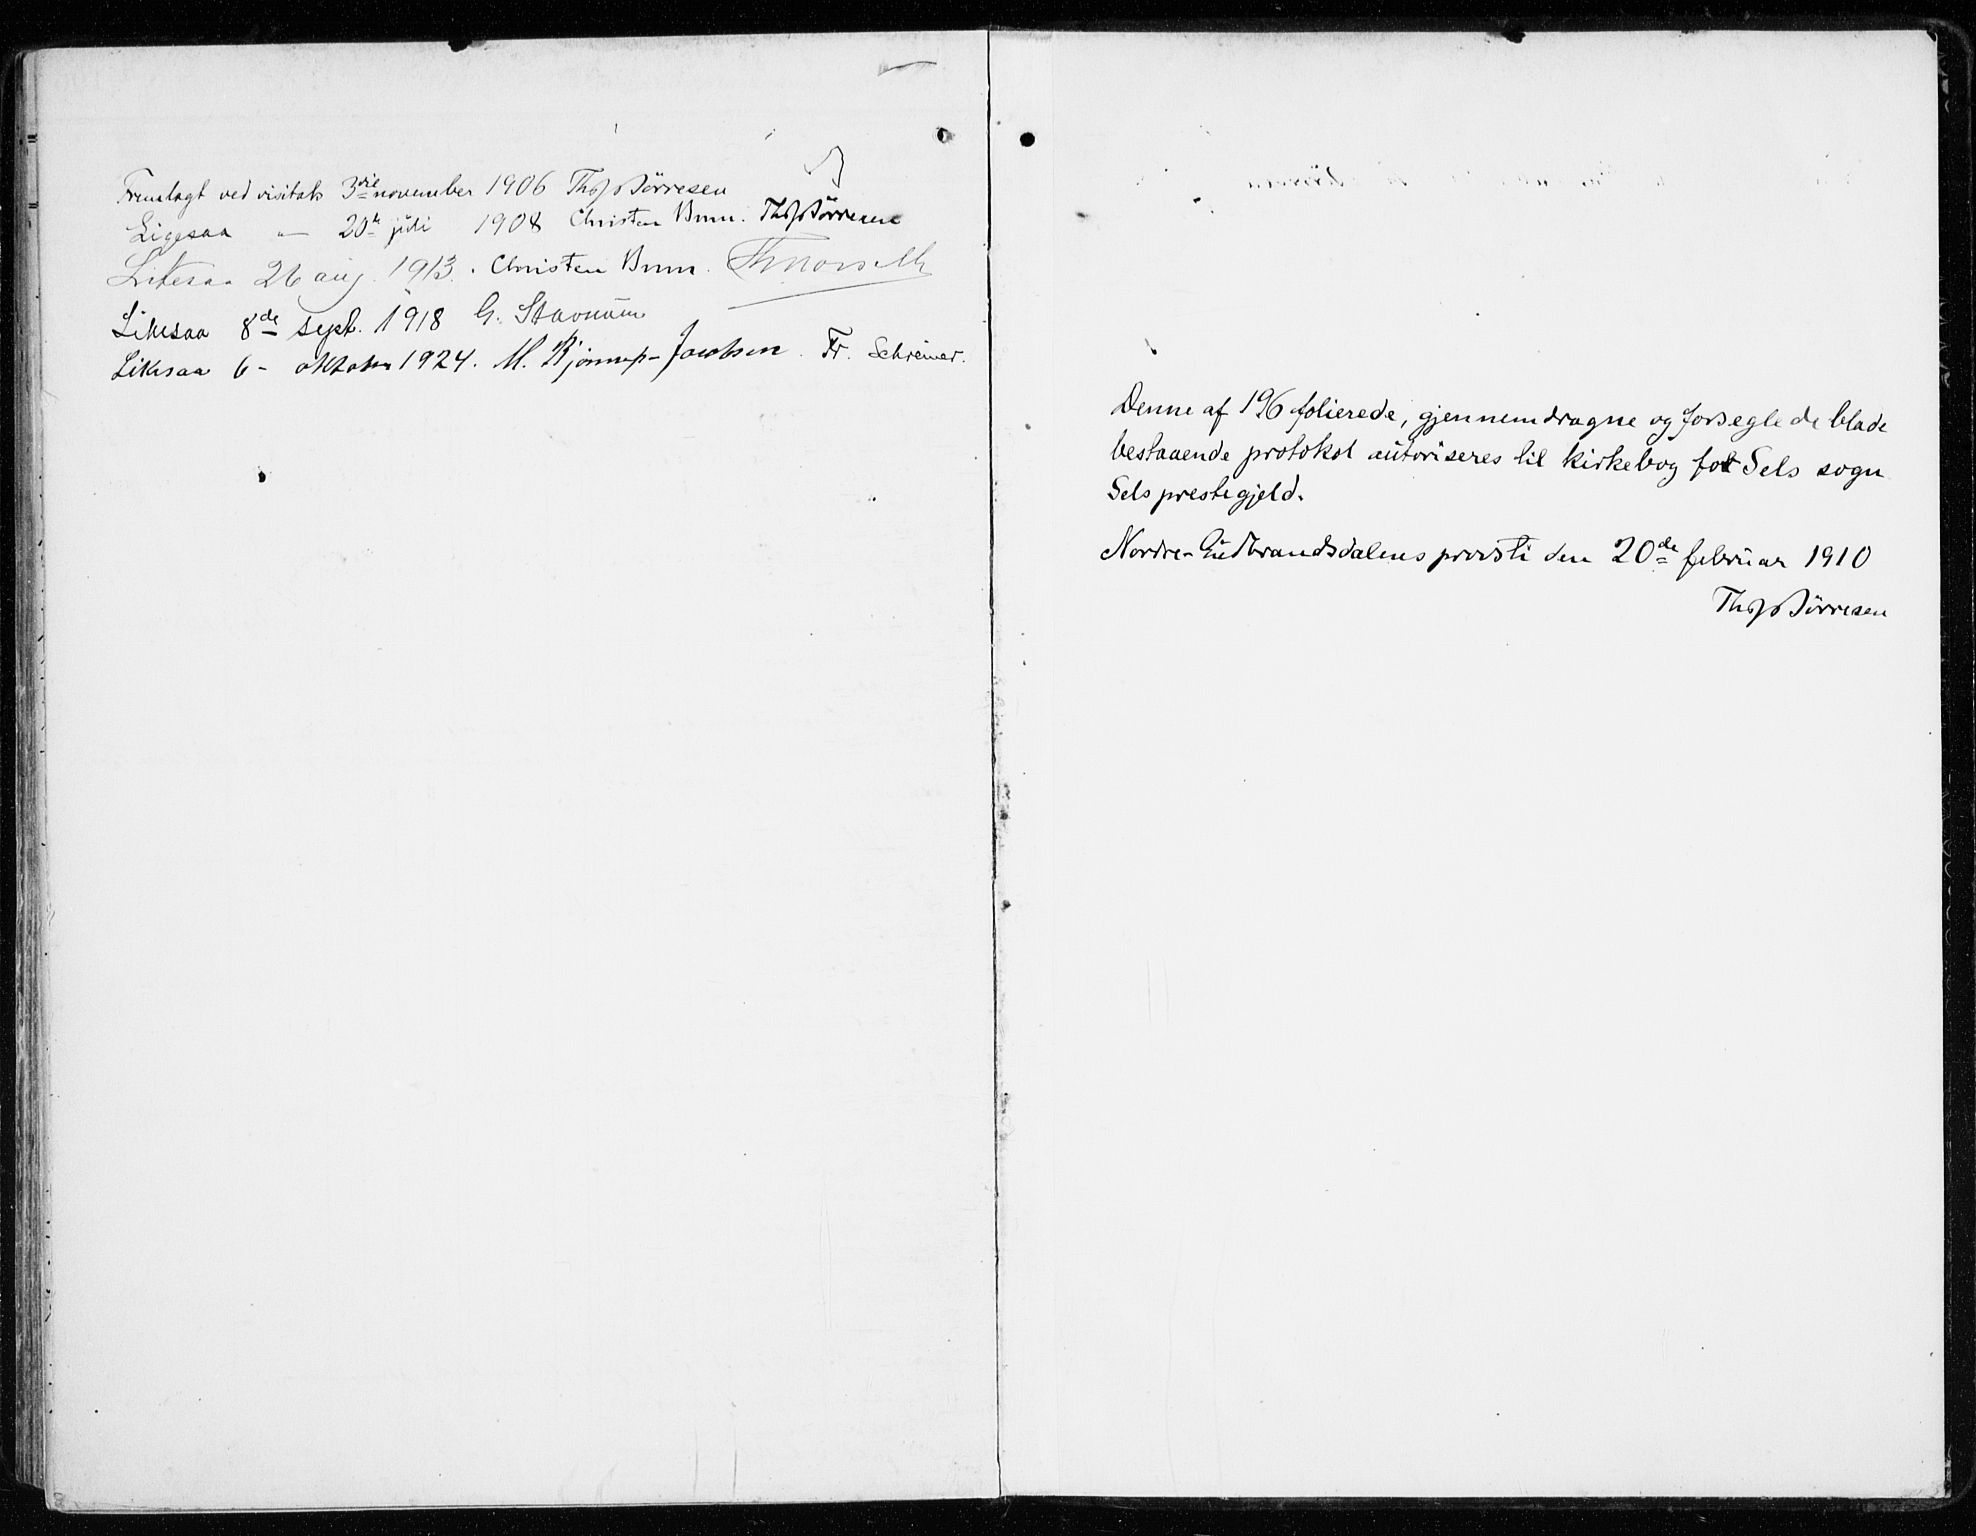 Fremlagt ved visitats 3die november 1906 Thf Tørresen
Ligesaa — 20de juli 1908 Christen Brun. Thf Tørresen
Likesaa 26 aug. 1913. Christen Brun.
Likesaa 8de sept. 1918 G. Stavnum
Likesaa 6 - oktober 1924. M. Bjonnes-Jacobsen. Fr. Schreiner.
Denne af 196 folierede, gjennemdragne og forseglede blade
bestaaende protokol autoriseres til kirkebog for Sels sogn
Sels prestegjeld.
Nordre-Gudbrandsdalens provsti den 20de februar 1910
Thf Tørresen